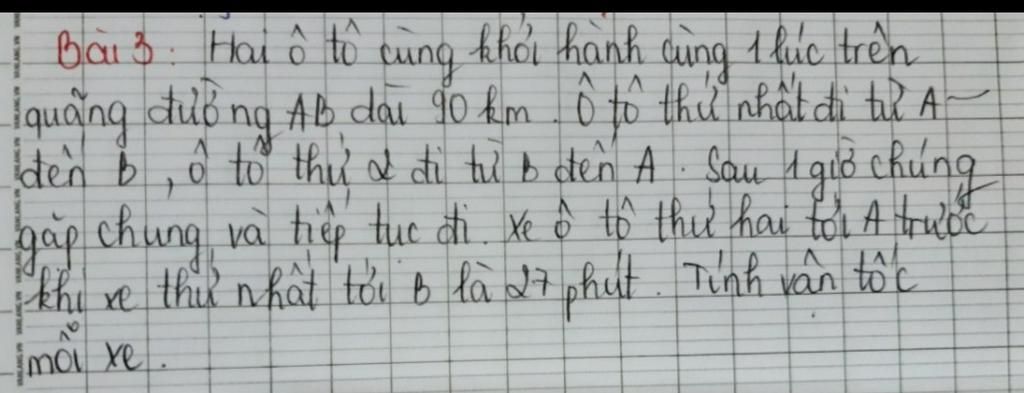 Bài 3: Hai ô tô cùng khởi hành cùng 1 lúc trên
quãng đường AB dài 90 km. Ô tô thứ nhất đi từ A
đến B, ô tô thứ 2 đi từ B đến A. Sau 1 giờ chúng
gặp chung và tiếp tục đi. Xe ô tô thứ hai tới A trước
khi xe thứ nhất tới B là 27 phút. Tính vận tốc
mỗi xe.